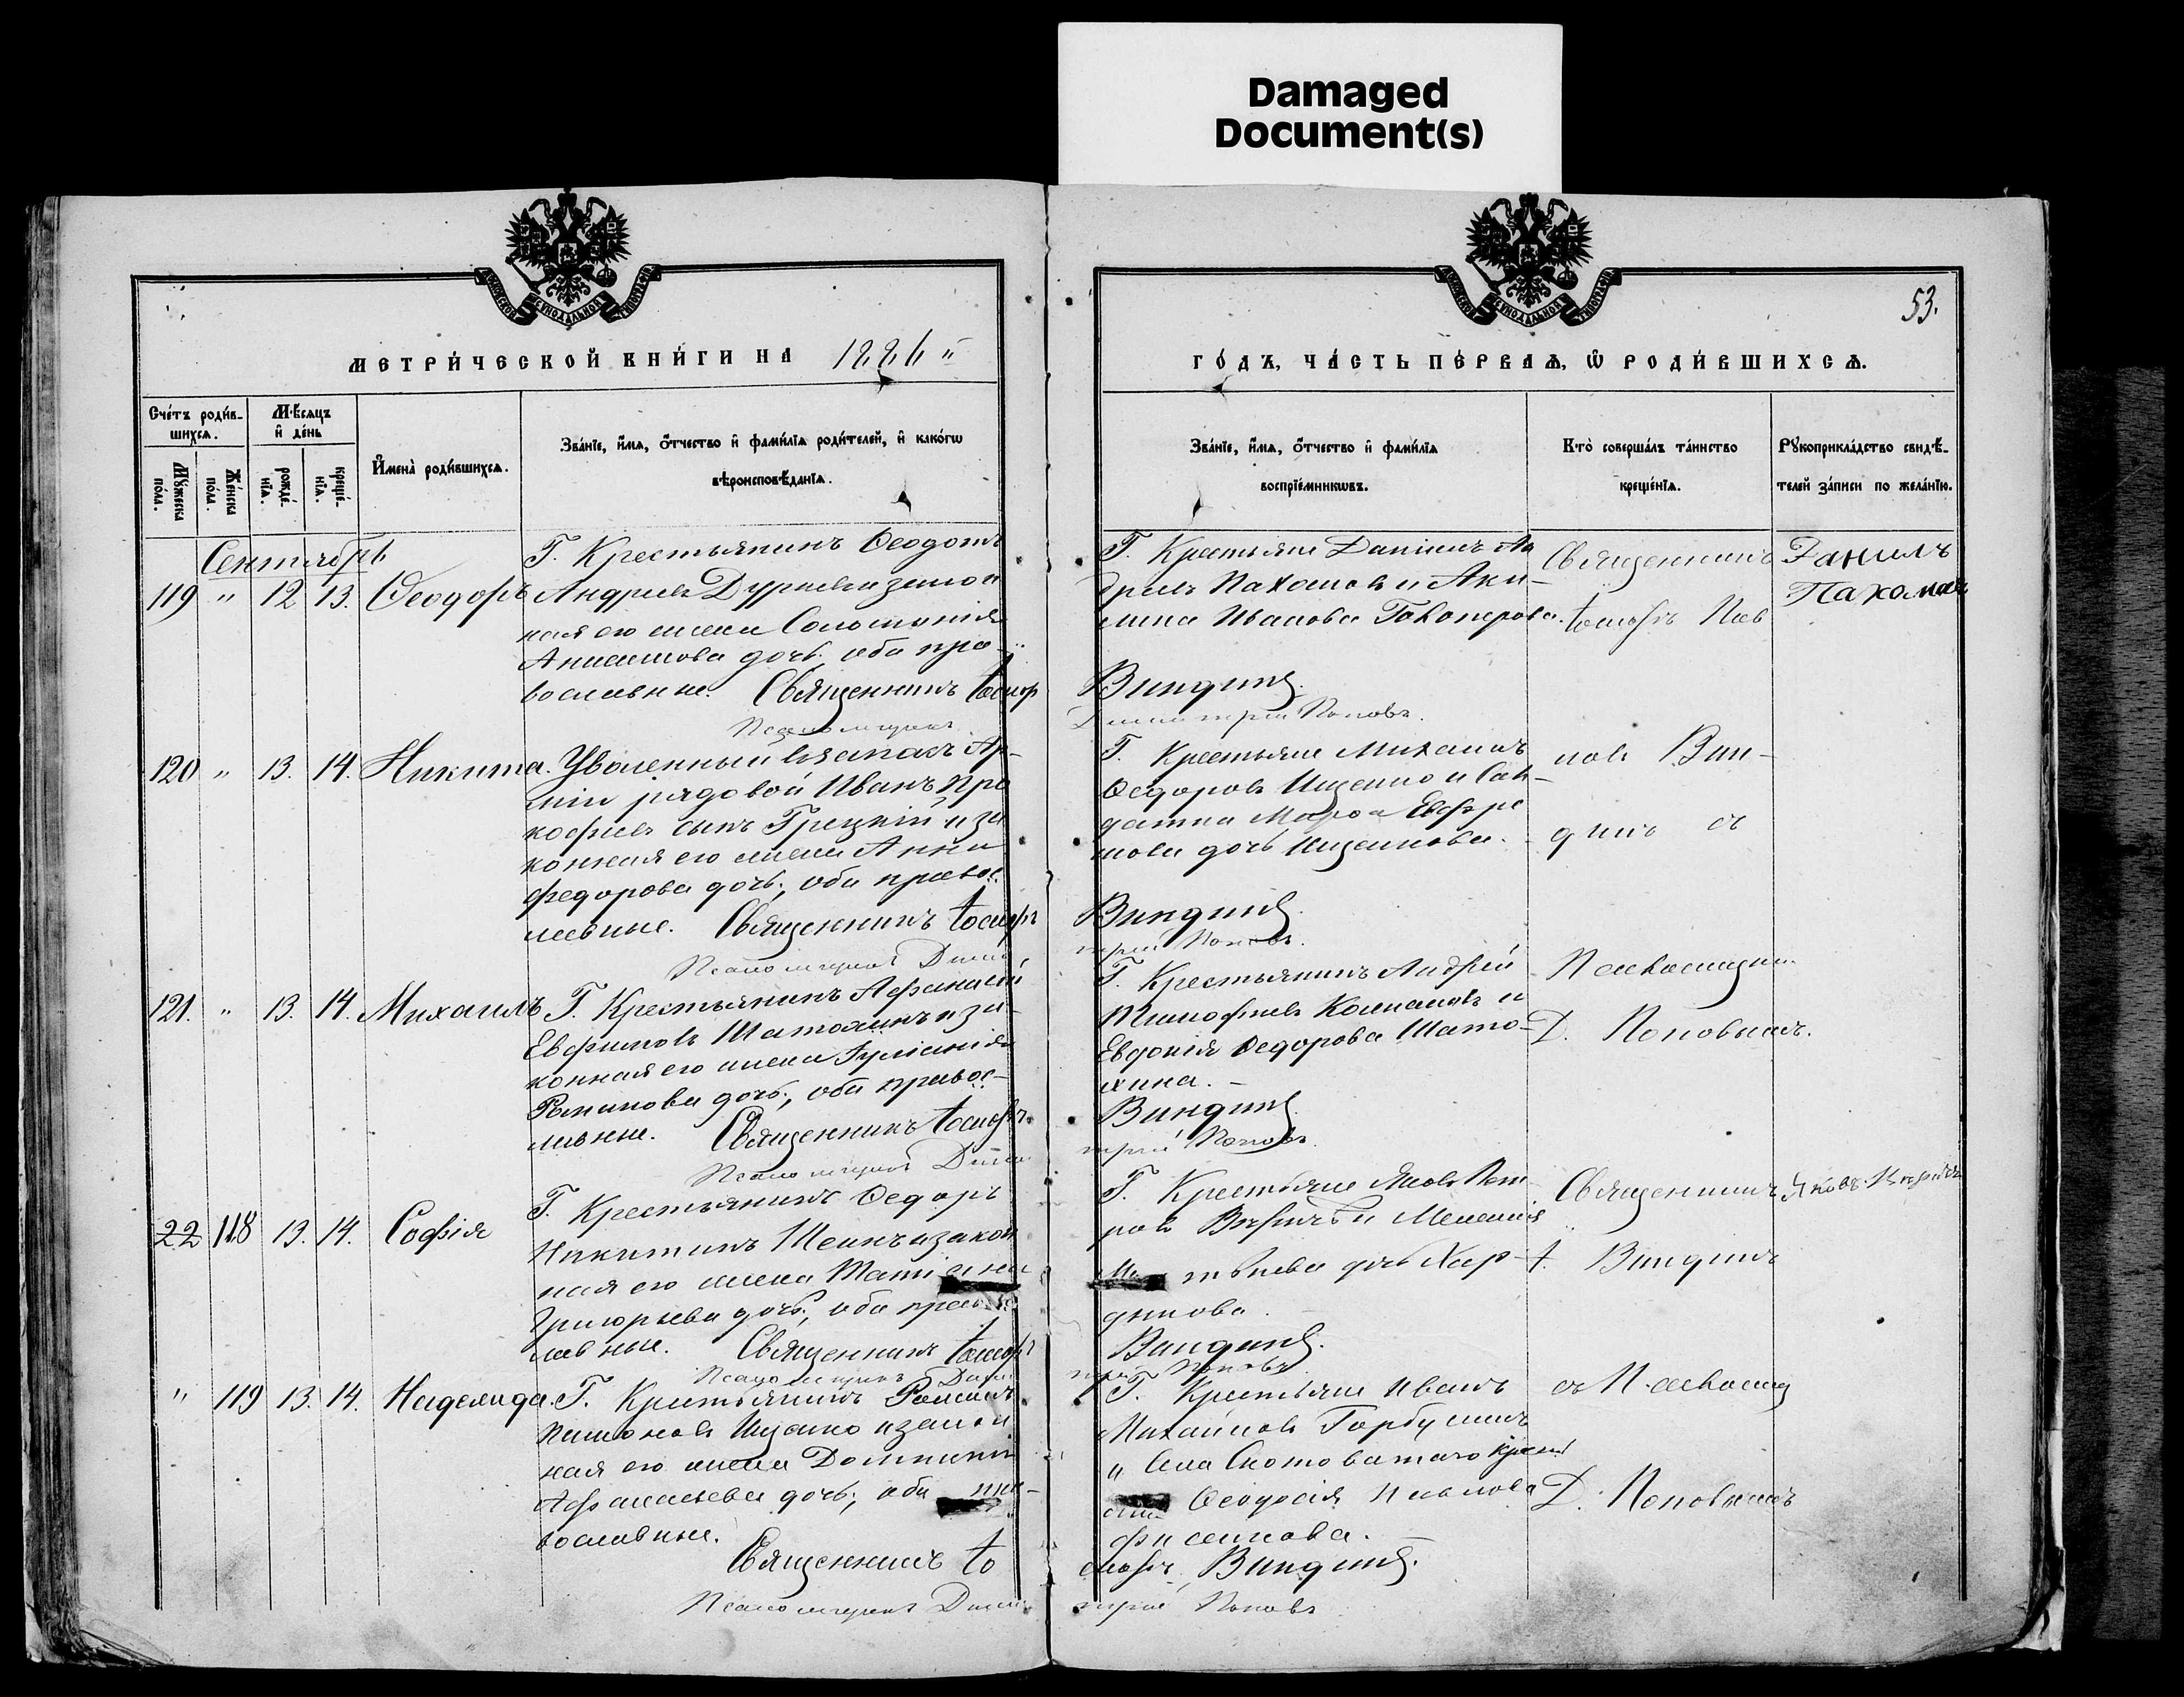 Damaged
Document(s)
53.
МЕТРИ́ЧЕСКОЙ КНИ́ГИ НА 1886
ГО́ДЪ, ЧА́СТЬ ПЕ́РВАѦ, Ѡ҆ РОДИ́ВШИХСѦ.
Сче́тъ роди́в-
шихсѧ.
Мꙋ́жеска
по́ла.
Же́нска
по́ла.
Мѣ́сѧцъ
и҆ де́нь
рожде́-
нїѧ.
креще́-
нїѧ.
И҆мена̀ роди́вшихсѧ.
Зва́нїе, и҆́мѧ, ѻ҆́тчество и҆ фами́лїѧ роди́телей, и҆ како́гѡ
вѣроисповѣ́данїѧ.
Зва́нїе, и҆́мѧ, ѻ҆́тчество и҆ фами́лїѧ
воспрїе́мникѡвъ.
Кто̀ соверша́лъ та́инство
креще́нїѧ.
Рꙋкоприкла́дство свидѣ́-
телей за́писи по жела́нїю.
Сентябрь
119 " 12 13. Ѳеодоръ
Г. Крестьянинъ Ѳеодотъ
Андреевъ и закон
ная его жена Соломонія
дочь, оба пра-
вославные. Священникъ Іосиф
Псаломщикъ
Г. Крестьяне Даніилъ Ан
дреевъ Пахомовъ и Аки-
лина Иванова
Виндинъ.
Димитрій Поповъ.
Священникъ
Іосифъ Пав
Данилъ
Пахомовъ
120 " 13. 14. Никита.
Уволенный въ запасъ Ар-
міи рядовой Иванъ Про
кофіевъ сынъ Грецкій и за
конная его жена Анна
Федорова дочь, оба правос
лавные. Священникъ Іосифъ
Псаломщикъ Дими
Г. Крестьяне Михаилъ
Ѳедоровъ Ищенко и Сол-
датка Марѳа Евфре
мова дочь Ищенкова.
Виндинъ
трій Поповъ.
ловъ Вин-
динъ съ
121. " 13. 14. Михаилъ
Г. Крестьянинъ Афанасій
Евфимовъ Шатохинъ и за-
конная его жена Гуліанія
Романова дочь, оба правос-
лавные. Священникъ Іосифъ
Псаломщикъ Дими
Г. Крестьянинъ Андрей
Тимофіевъ Колмаковъ и
Евдокія Ѳедорова Шато-
хина. -
Виндинъ
трій Поповъ.
Псаломщик
Д. Поповымъ.
22 118 13. 14. Софія
Г. Крестьянинъ Ѳедоръ
Никитинъ Шеинъ и закон
ная его жена Татіана
Григорьева дочь, оба правос
лавные. Священникъ Іосифъ
Псаломщикъ Дими
Г. Крестьяне Яковъ Пет
ровъ и Меланія
дочь Хар-
Виндинъ.
трій Поповъ
Священникъ
І. Виндинъ
Яковъ
" 119 13. 14. Надежда.
Г. Крестьянинъ Романъ
Пимоновъ Ищенко и закон
ная его жена Домникія
Афанасьева дочь, оба пра-
вославные.
Священникъ Іо
Псаломщикъ Дими
Г. Крестьяне Иванъ
Михайловъ Горбулинъ
и Села Скотоватаго крест
Ѳеодосія
Виндинъ.
трій Поповъ
съ Псаломщ
Д. Поповымъ